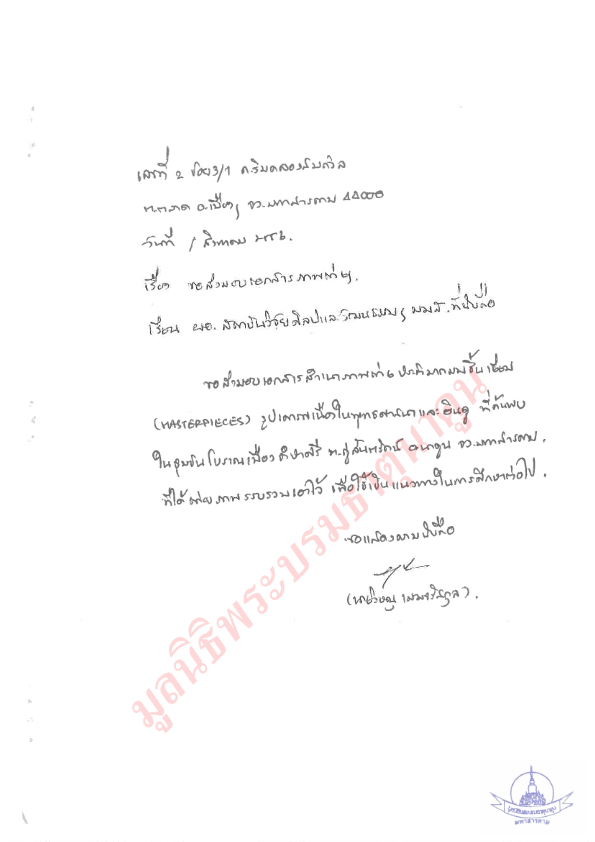 เลขที่ 2 ซอย 3/1 ถ.ริมคลองสมถวิล
ต.ตลาด อ.เมือง จว.มหาสารคาม 44000
วันที่ 1 สิงหาคม
เรื่อง ขอส่งมอบเอกสารภาพถ่าย
เรียน ผอ. สถาบันวิจัยศิลปะและวัฒนธรรม มมส. ที่นับถือ
ขอส่งมอบเอกสารสำเนาภาพถ่าย ประติมากรรมชิ้นเยี่ยม
(MASTERPIECES) รูปเคารพเนื่องในพุทธศาสนาและฮินดู ที่ค้นพบ
ในชุมชนโบราณเมือง ต.กู่สันตรัตน์ อ.นาดูน จว.มหาสารคาม.
ที่ได้ถ่ายภาพรวบรวมเอาไว้ เพื่อใช้เป็นแนวทางในการศึกษาต่อไป.
ขอแสดงความนับถือ
มูลนิธิพระบรมธาตุนาดูน
มหาสารคาม